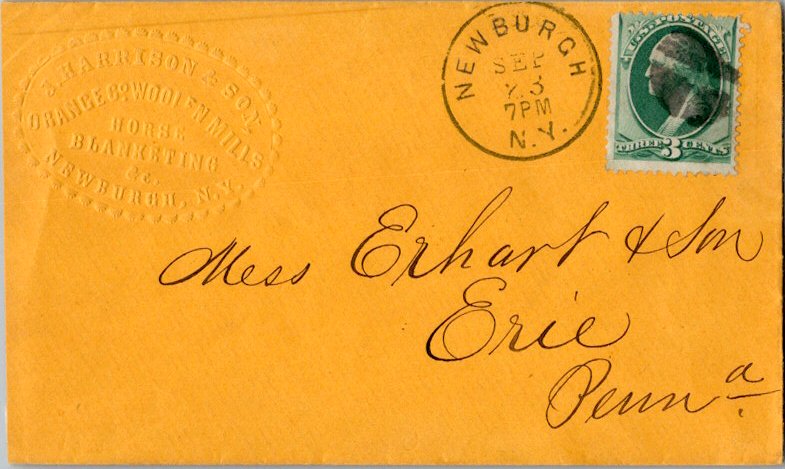 J. HARRISON & SON,
ORANGE Co. WOOLEN MILLS
HORSE
BLANKETING
&c.
NEWBURGH, N.Y.
NEWBURGH
SEP
23
7PM
N.Y.
U.S. POSTAGE
THREE 3 CENTS
Mess Erhart & Son
Erie
Penna